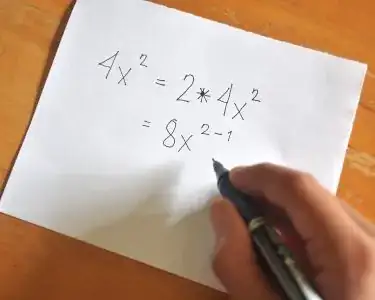 4x² = 2*4x²
= 8x²⁻¹